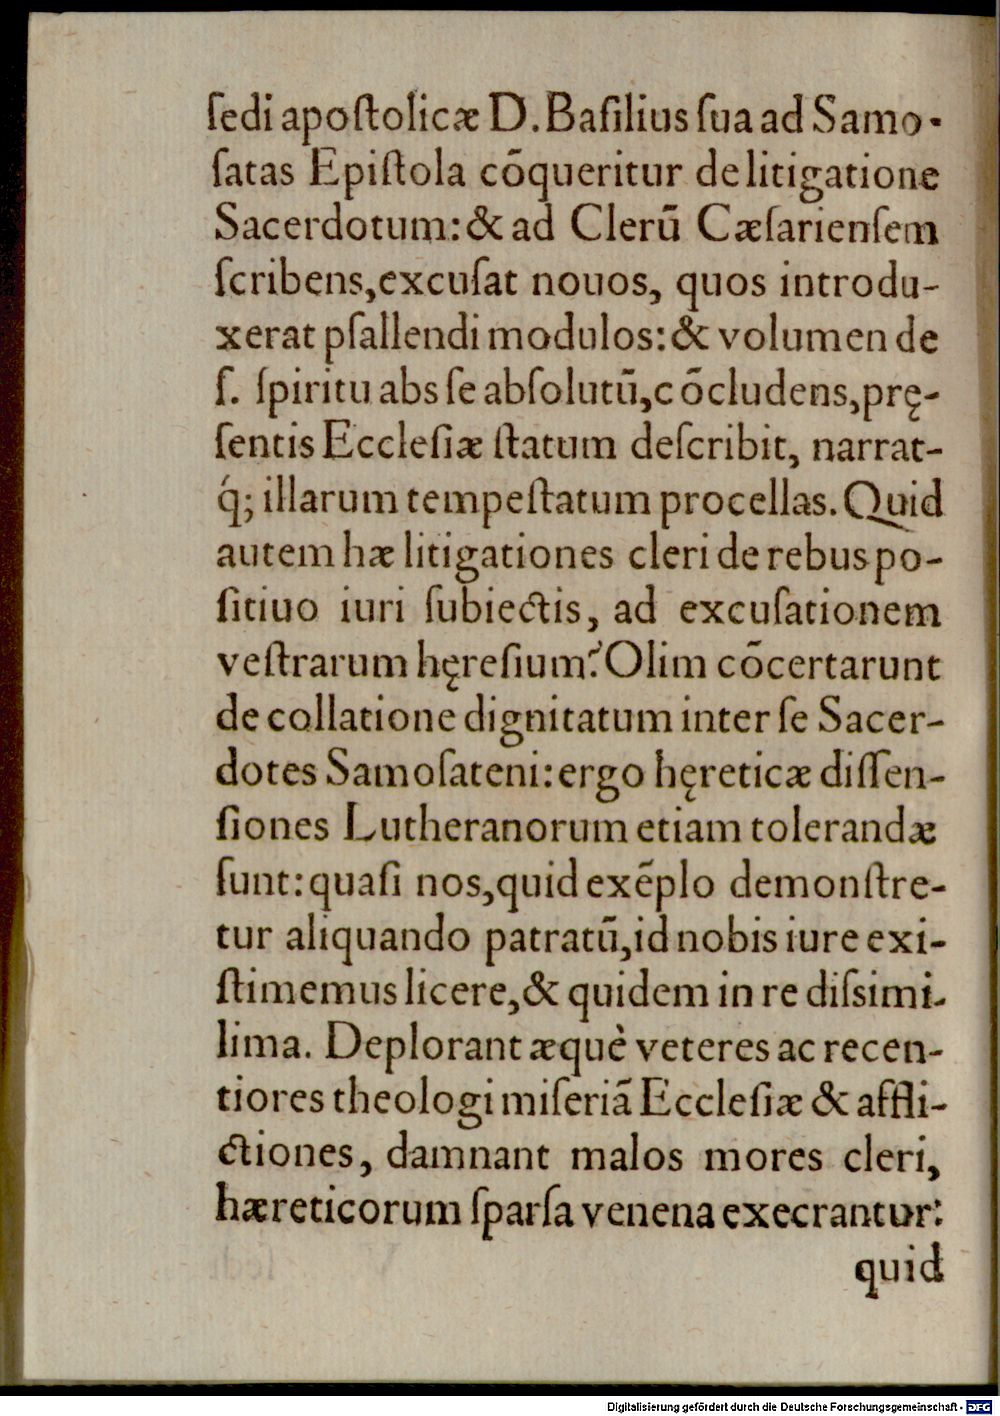 ſedi apoſtolicæ D. Baſilius ſua ad Samo-
ſatas Epiſtola cōqueritur de litigatione
Sacerdotum: & ad Clerū Cæſarienſem
ſcribens, excuſat nouos, quos introdu-
xerat pſallendi modulos: & volumen de
ſ. ſpiritu abs ſe abſolutū, cōcludens, prę-
ſentis Eccleſiæ ſtatum deſcribit, narrat-
q́; illarum tempeſtatum procellas. Quid
autem hæ litigationes cleri de rebus po-
ſitiuo iuri ſubiectis, ad excuſationem
veſtrarum hęreſium? Olim cōcertarunt
de collatione dignitatum inter ſe Sacer-
dotes Samoſateni: ergo hęreticæ diſſen-
ſiones Lutheranorum etiam tolerandæ
ſunt: quaſi nos, quid exēplo demonſtre-
tur aliquando patratū, id nobis iure exi-
ſtimemus licere, & quidem in re diſsimi-
lima. Deplorant æquè veteres ac recen-
tiores theologi miſeriā Eccleſiæ & affli-
ctiones, damnant malos mores cleri,
hæreticorum ſparſa venena execrantur:
quid
Digitalisierung gefördert durch die Deutsche Forschungsgemeinschaft - DFG